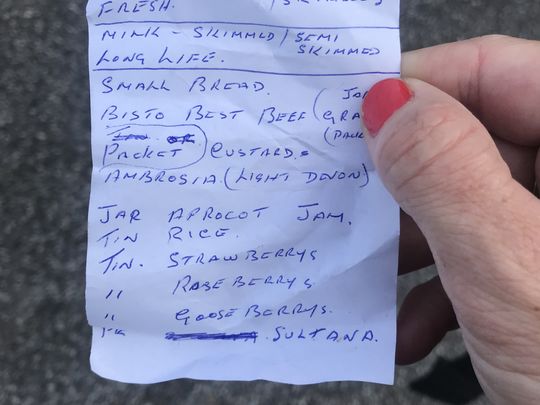 FRESH. / SKIMMED
MINK - SKIMMED / SEMI SKIMMED
LONG LIFE.
SMALL BREAD.
BISTO BEST BEEF (JAR
GRA
(PACK
PACKET CUSTARD.
AMBROSIA. (LIGHT DEVON)
JAR APROCOT JAM.
TIN RICE.
TIN. STRAWBERRYS
" RASEBERRYS
" GOOSEBERRYS.
PK SULTANA.